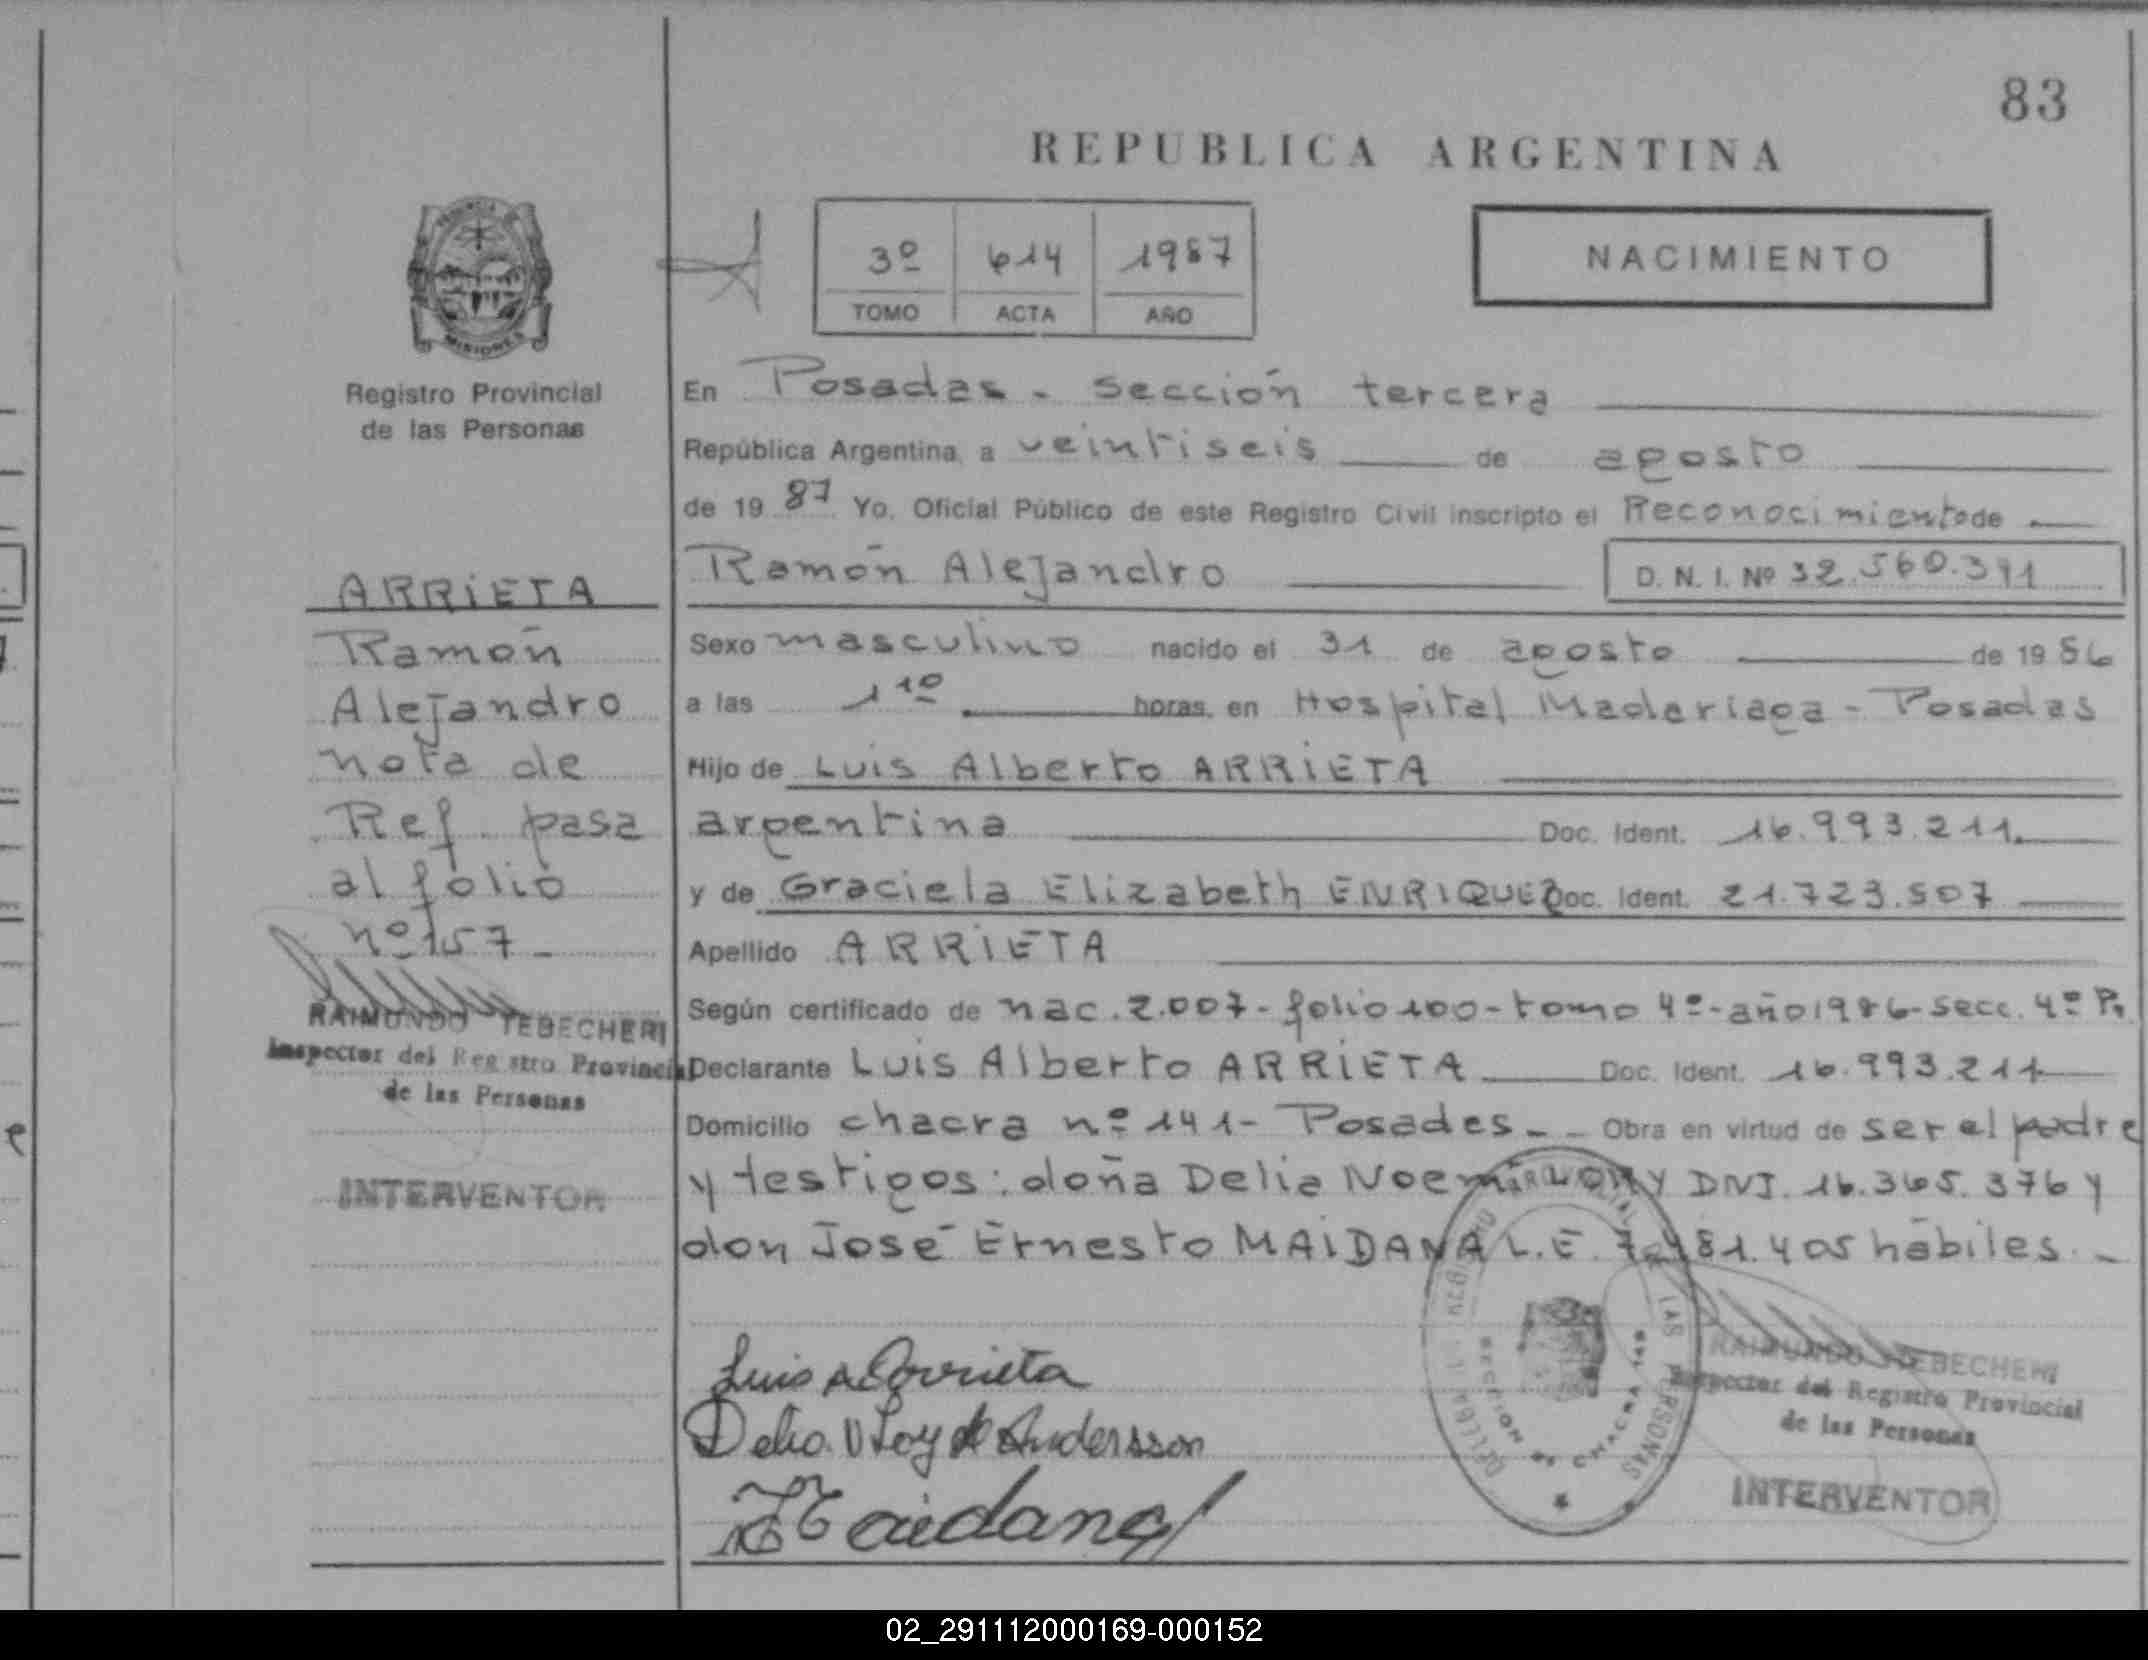 83
REPUBLICA ARGENTINA
3º 614 1987
TOMO ACTA AÑO
NACIMIENTO
MISIONES
Registro Provincial
de las Personas
En Posadas - sección tercera
República Argentina, a veintiseis de agosto
de 19 87 Yo, Oficial Público de este Registro Civil inscripto el Reconocimiento de
Ramón Alejandro D. N. I. Nº 32.560.391
Sexo masculino nacido el 31 de agosto de 19 86
a las 11º horas, en Hospital Madariaga - Posadas
Hijo de Luis Alberto ARRIETA
argentina Doc. Ident. 16.993.211.
y de Graciela Elizabeth ENRIQUEZ Doc. Ident. 21.723.507
Apellido ARRIETA
Según certificado de nac. 2.007 - folio 100 - tomo 4º - año 1986 - secc. 4º P.
Declarante Luis Alberto ARRIETA Doc. Ident. 16.993.211
Domicilio chacra nº 141 - Posadas - Obra en virtud de ser el padre
y testigos: doña Delia Noemí DNI. 16.365.376 y
don José Ernesto MAIDANA L.E. 81.405 hábiles. -
Luis A Arrieta
Delia de Andersson
Maidana
LAS PERSONAS
RAIMUNDO TEBECHERI
Inspector del Registro Provincial
de las Personas
INTERVENTOR
ARRIETA
Ramón
Alejandro
nota de
Ref. pasa
al folio
nº 157 -
RAIMUNDO TEBECHERI
Inspector del Registro Provincial
de las Personas
INTERVENTOR
02_291112000169-000152